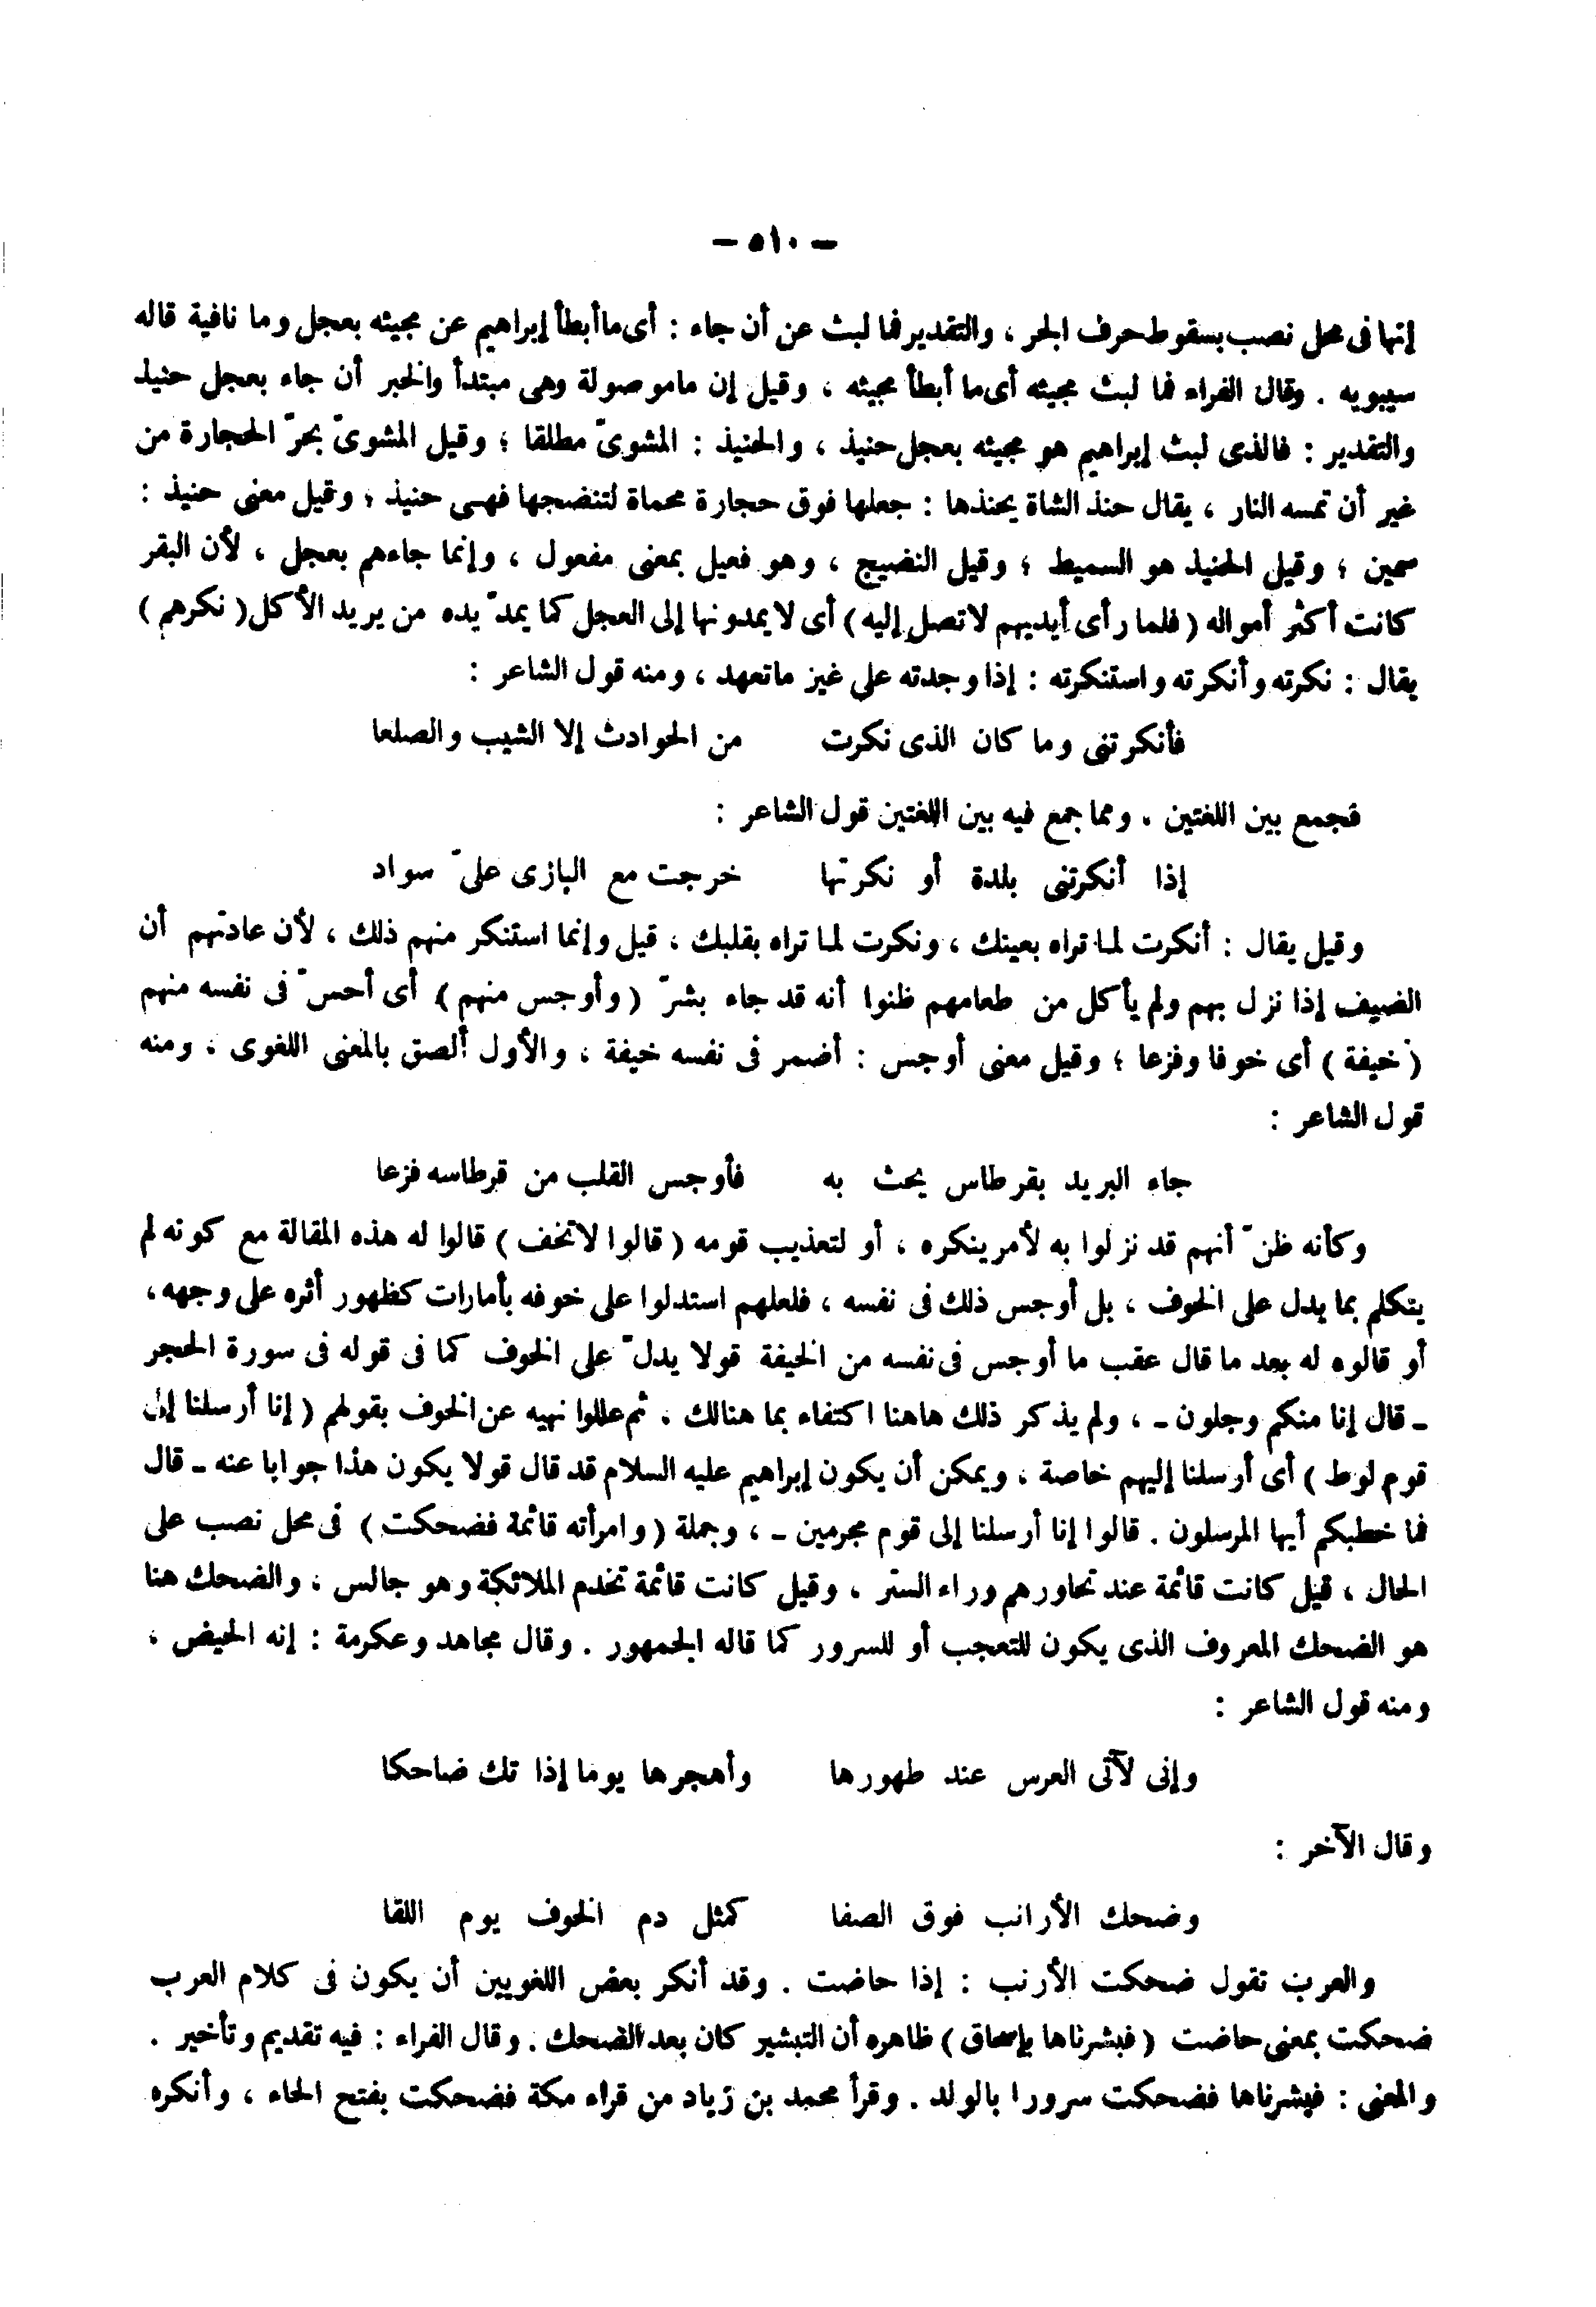 — ٥١٠ —
إنها فى محل نصب بسقوط حرف الجر ، والتقدير فما لبث عن أن جاء : أى ما أبطأ إبراهيم عن مجيئه بعجل وما نافية قاله
سيبويه . وقال الفراء فما لبث مجيئه أى ما أبطأ مجيئه ، وقيل إن ما موصولة وهى مبتدأ والخبر أن جاء بعجل حنيذ
والتقدير : فالذى لبث إبراهيم هو مجيئه بعجل حنيذ ، والحنيذ : المشوىّ مطلقا ؛ وقيل المشوىّ بحرّ الحجارة من
غير أن تمسه النار ، يقال حنذ الشاة يحنذها : جعلها فوق حجارة محماة لتنضجها فهى حنيذ ؛ وقيل معنى حنيذ :
سمين ؛ وقيل الحنيذ هو السميط ؛ وقيل النضيج ، وهو فعيل بمعنى مفعول ، وإنما جاءهم بعجل ، لأن البقر
كانت أكثر أمواله ( فلما رأى أيديهم لا تصل إليه ) أى لا يمدونها إلى العجل كما يمدّ يده من يريد الأكل ( نكرهم )
يقال : نكرته وأنكرته واستنكرته : إذا وجدته على غير ما تعهد ، ومنه قول الشاعر :
فأنكرتنى وما كان الذى نكرت من الحوادث إلا الشيب والصلعا
فجمع بين اللغتين ، ومما جمع فيه بين اللغتين قول الشاعر :
إذا أنكرتنى بلدة أو نكرتها خرجت مع البازى علىّ سواد
وقيل يقال : أنكرت لما تراه بعينك ، ونكرت لما تراه بقلبك ، قيل وإنما استنكر منهم ذلك ، لأن عادتهم أن
الضيف إذا نزل بهم ولم يأكل من طعامهم ظنوا أنه قد جاء بشرّ ( وأوجس منهم ) أى أحسّ فى نفسه منهم
( خيفة ) أى خوفا وفزعا ؛ وقيل معنى أوجس : أضمر فى نفسه خيفة ، والأول ألصق بالمعنى اللغوى ، ومنه
قول الشاعر :
جاء البريد بقرطاس يحث به فأوجس القلب من قرطاسه فزعا
وكأنه ظنّ أنهم قد نزلوا به لأمر ينكره ، أو لتعذيب قومه ( قالوا لا تخف ) قالوا له هذه المقالة مع كونه لم
يتكلم بما يدل على الخوف ، بل أوجس ذلك فى نفسه ، فلعلهم استدلوا على خوفه بأمارات كظهور أثره على وجهه ،
أو قالوه له بعد ما قال عقب ما أوجس فى نفسه من الخيفة قولا يدلّ على الخوف كما فى قوله فى سورة الحجر
ـ قال إنا منكم وجلون ـ ، ولم يذكر ذلك هاهنا اكتفاء بما هنالك ، ثم عللوا نهيه عن الخوف بقولهم ( إنا أرسلنا إلى
قوم لوط ) أى أرسلنا إليهم خاصة ، ويمكن أن يكون إبراهيم عليه السلام قد قال قولا يكون هذا جوابا عنه ـ قال
فما خطبكم أيها المرسلون . قالوا إنا أرسلنا إلى قوم مجرمين ـ ، وجملة ( وامرأته قائمة فضحكت ) فى محل نصب على
الحال ، قيل كانت قائمة عند تحاورهم وراء الستر ، وقيل كانت قائمة تخدم الملائكة وهو جالس ، والضحك هنا
هو الضحك المعروف الذى يكون للتعجب أو للسرور كما قاله الجمهور . وقال مجاهد وعكرمة : إنه الحيض ،
ومنه قول الشاعر :
وإنى لآتى العرس عند طهورها وأهجرها يوما إذا تك ضاحكا
وقال الآخر :
وضحك الأرانب فوق الصفا كمثل دم الخوف يوم اللقا
والعرب تقول ضحكت الأرنب : إذا حاضت . وقد أنكر بعض اللغويين أن يكون فى كلام العرب
ضحكت بمعنى حاضت ( فبشرناها بإسحاق ) ظاهره أن التبشير كان بعد الضحك . وقال الفراء : فيه تقديم وتأخير .
والمعنى : فبشرناها فضحكت سرورا بالولد . وقرأ محمد بن زياد من قراء مكة فضحكت بفتح الحاء ، وأنكره